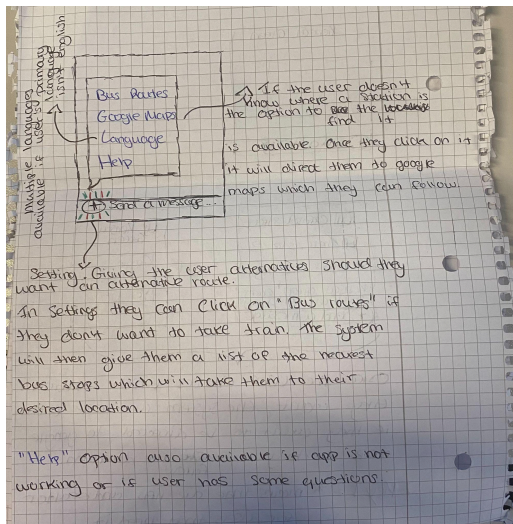 Multiple languages
available if user's primary
language
isn't english
Bus Routes
Google Maps
Language
Help
(+) Send a message...
If the user doesn't
know where a station is
the option to the
find it
is available. Once they click on it
it will direct them to google
maps which they can follow.
Setting: Giving the user alternatives should they
want an alternative route.
In Settings they can click on "Bus routes" if
they don't want to take tran. The system
will then give them a list of the nearest
bus stops which will take them to their
desired location.
"Help" option also available if app is not
working or if user has some questions.